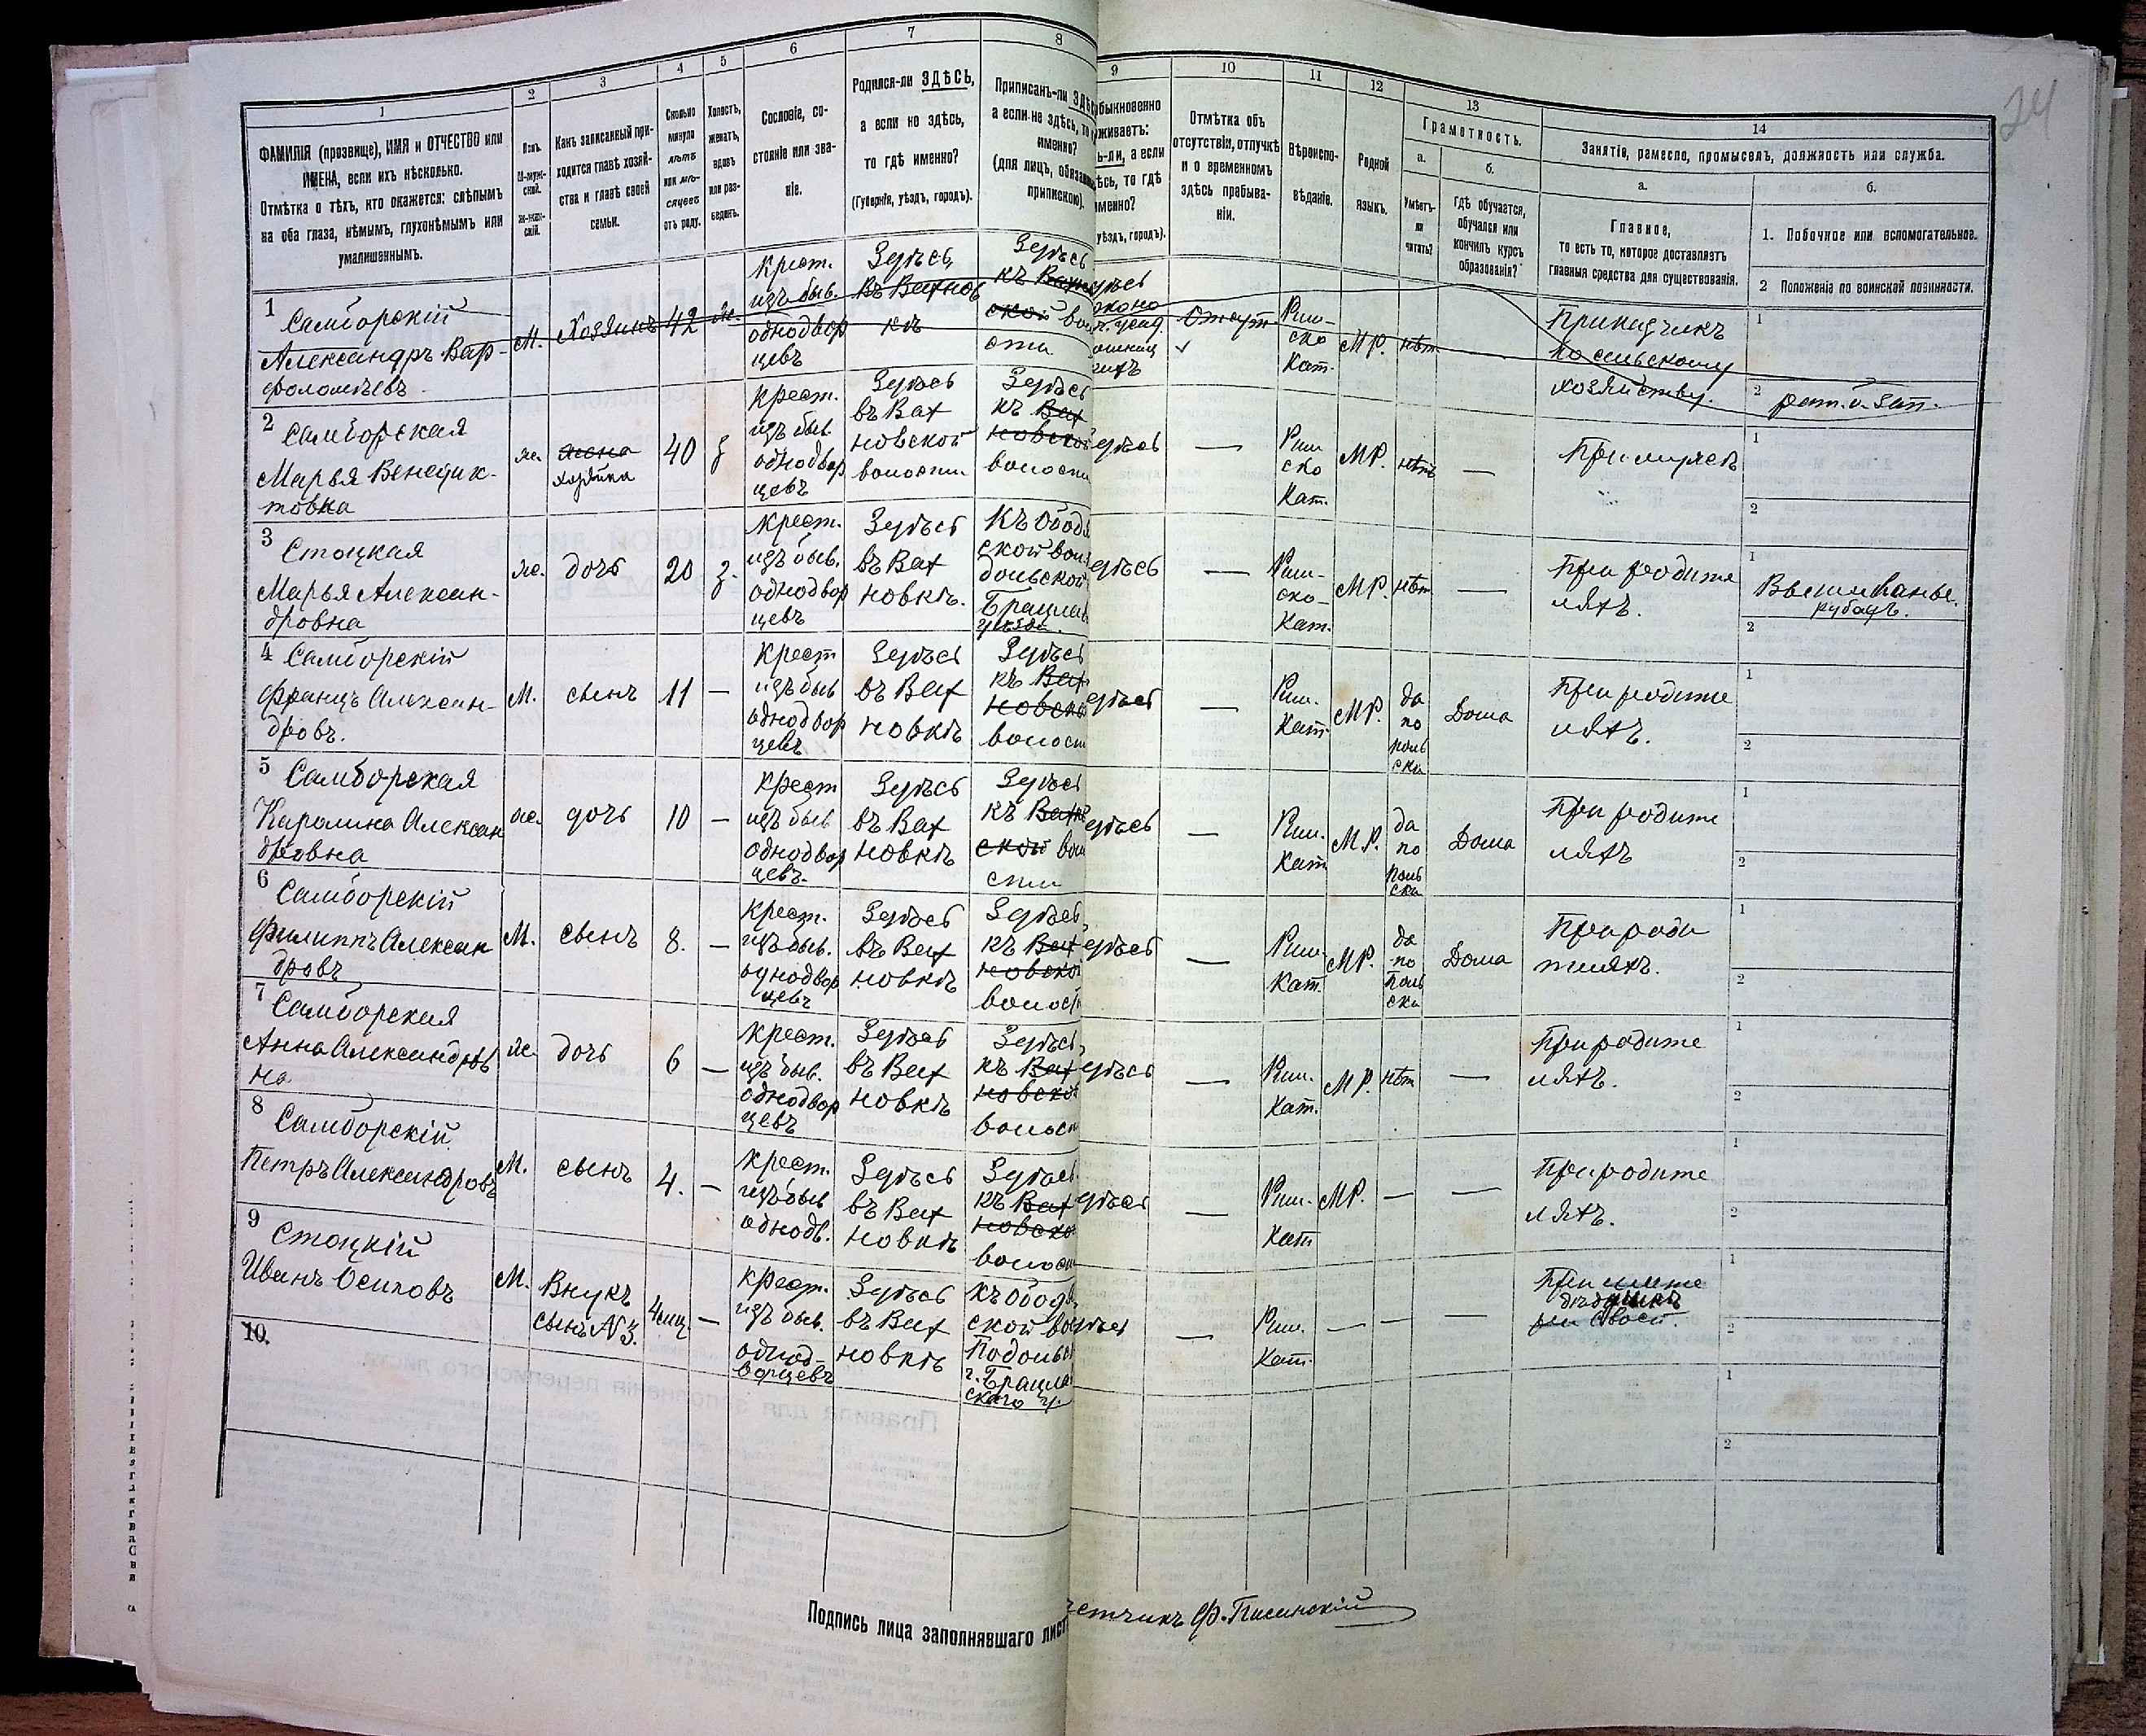 24
1 2 3 4 5 6 7 8 9 10 11 12 13 14
ФАМИЛІЯ (прозвище), ИМЯ и ОТЧЕСТВО или
ИМЕНА, если ихъ нѣсколько.
Отмѣтка о тѣхъ, кто окажется: слѣпымъ
на оба глаза, нѣмымъ, глухонѣмымъ или
умалишеннымъ.
Полъ.
М-муж-
ской.
Ж-жен-
скій.
Какъ записанный при-
ходится главѣ хозяй-
ства и главѣ своей
семьи.
Сколько
минуло
лѣтъ
или мѣ-
сяцевъ
отъ роду.
Холостъ,
женатъ,
вдовъ
или раз-
веденъ.
Сословіе, со-
стояніе или зва-
ніе.
Родился-ли ЗДѢСЬ,
а если не здѣсь,
то гдѣ именно?
(Губернія, уѣздъ, городъ).
Приписанъ-ли ЗДѢ
а если не здѣсь, то
именно?
(для лицъ, обяза
припискою).
быкновенно
живаетъ:
ь-ли, а если
ѣсь, то гдѣ
менно?
уѣздъ, городъ).
Отмѣтка объ
отсутствіи, отлучкѣ
и о временномъ
здѣсь пребыва-
ніи.
Вѣроиспо-
вѣданіе.
Родной
языкъ.
Грамотность.
а.
Умѣетъ-
ли
читать?
б.
Гдѣ обучается,
обучался или
кончилъ курсъ
образованія?
Занятіе, ремесло, промыселъ, должность или служба.
а.
Главное,
то есть то, которое доставляетъ
главныя средства для существованія.
б.
1. Побочное или вспомогательное.
2 Положеніе по воинской повинности.
1 Самборскій
Александръ Вар-
фоломѣевъ
М.
Хозяинъ
42
ж.
Крест.
изъ быв.
однодвор
цевъ
Здѣсь,
въ Вахнов
кѣ
Здѣсь
къ Вахн
ской во
сти
Отсут.
Рим-
ско
Кат.
МР.
нѣт
Прикащикъ
по сельскому
хозяйству.
1
2 рат. о. зап.
2 Самборская
Марья Венедик-
товна
ж.
жена
хозяйка
40
з
Крест.
изъ быв.
однодвор
цевъ
Здѣсь
въ Вах
новской
волости
Здѣсь
къ Вах
новской
волости
дѣсь
—
Рим
ско
Кат.
МР.
нѣтъ
—
При мужѣ
1
2
3 Стоцкая
Марья Алексан-
дровна
ж.
дочь
20
з.
Крест.
изъ быв.
однодвор
цевъ
Здѣсь
въ Вах
новкѣ.
Къ Обод
ской вол
дольской
Брацла
уѣзда.
дѣсь
—
Рим-
ско-
Кат.
МР.
нѣт
—
При родите
ляхъ.
1
Вышиванье
рубахъ.
2
4 Самборскій
Францъ Алексан-
дровъ.
М.
сынъ
11
—
Крест
изъ быв
однодвор
цевъ
Здѣсь
въ Вах
новкѣ
Здѣсь
къ Вах
новско
волост
дѣсь
—
Рим.
Кат.
МР.
да
по
поль
ски
Дома
При родите
ляхъ.
1
2
5 Самборская
Каролина Алексан
дровна
ж.
дочь
10
—
Крест
изъ быв
однодвор
цевъ.
Здѣсь
въ Вах
новкѣ
Здѣсь
къ Вахн
ской вол
сти
дѣсь
—
Рим.
Кат
МР.
да
по
поль
ски
Дома
При родите
ляхъ
1
2
6 Самборскій
Филиппъ Алексан
дровъ
М.
сынъ
8.
—
Крест.
изъ быв.
однодвор
цевъ
Здѣсь
въ Вах
новкѣ
Здѣсь,
къ Вах
новско
волост
дѣсь
—
Рим.
Кат.
МР.
да
по
Поль
ски
Дома
При роди
теляхъ.
1
2
7 Самборская
Анна Александров
на
ж.
дочь
6
—
Крест.
изъ быв.
однодвор
цевъ
Здѣсь
въ Вах
новкѣ
Здѣсь,
къ Вах
новско
волост
дѣсь
—
Рим.
Кат.
МР.
нѣт
—
При родите
ляхъ.
1
2
8 Самборскій
Петръ Александровъ
М.
сынъ
4.
—
Крест.
изъ быв
однодв.
Здѣсь
въ Вах
новкѣ
Здѣсь
къ Вах
новско
волост
дѣсь
—
Рим.
Кат
МР.
—
—
При родите
ляхъ.
1
2
9 Стоцкій
Иванъ Осиповъ
М.
Внукъ
сынъ N 3.
4 мц.
—
Крест.
изъ быв.
однод-
ворцевъ
Здѣсь
въ Вах
новкѣ
Къ Обод
ской во
Подольс
г. Брацла
скаго у.
дѣсь
—
Рим.
Кат.
—
—
—
При
1
2
10.
1
2
Подпись лица заполнявшаго лист
етчикъ Ф. Писинскій